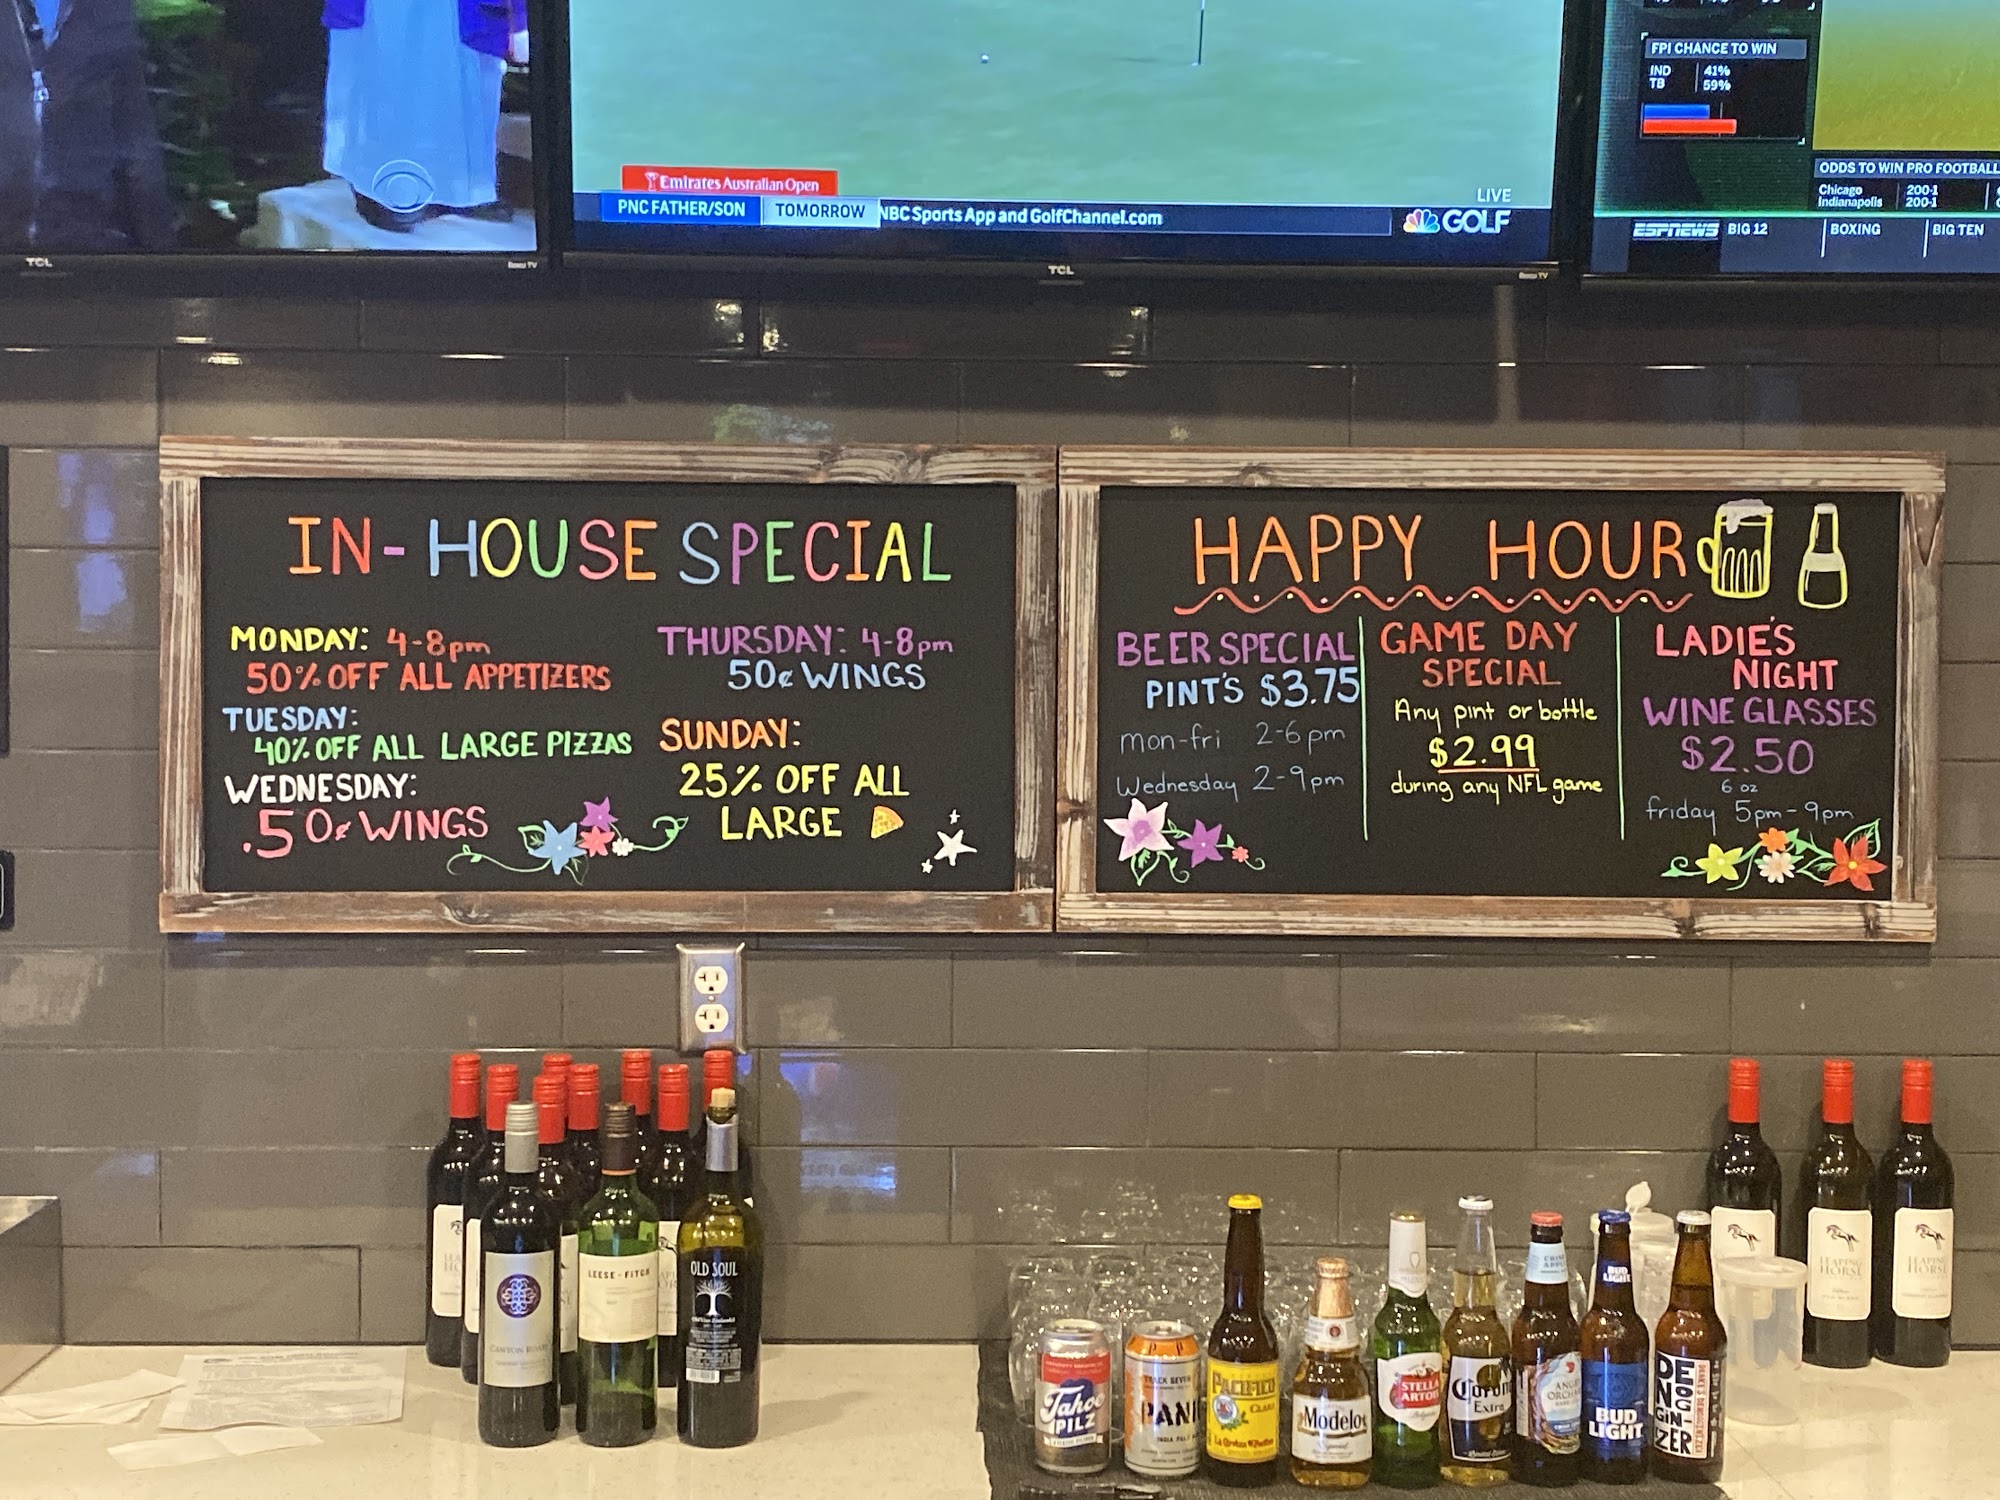 FPI CHANCE TO WIN
IND 41%
TB 59%
Emirates Australian Open
PNC FATHER/SON TOMORROW NBC Sports App and GolfChannel.com
LIVE
GOLF
ODDS TO WIN PRO FOOTBALL
Chicago 200-1
Indianapolis 200-1
ESPNEWS BIG 12 BOXING BIG TEN
TCL
Roku TV
TCL
Roku TV
IN-HOUSE SPECIAL
MONDAY: 4-8pm
50% OFF ALL APPETIZERS
TUESDAY:
40% OFF ALL LARGE PIZZAS
WEDNESDAY:
.50¢ WINGS
THURSDAY: 4-8pm
50¢ WINGS
SUNDAY:
25% OFF ALL
LARGE
HAPPY HOUR
BEER SPECIAL
PINT'S $3.75
mon-fri 2-6pm
Wednesday 2-9pm
GAME DAY
SPECIAL
Any pint or bottle
$2.99
during any NFL game
LADIE'S
NIGHT
WINE GLASSES
$2.50
6 oz
friday 5pm-9pm
CANYON ROAD
LEESE-FITCH
OLD SOUL
Tahoe
PILZ
TRACK SEVEN
PANIC
INDIA PALE
PACIFICO
CLARA
Modelo
Especial
STELLA
ARTOIS
Corona
Extra
CRISP
APPLE
ANGRY
ORCHARD
BUD
LIGHT
BUD
LIGHT
DE
NO
GIN
IZER
DRAKE'S DENOGINIZER
LEAPING
HORSE
LEAPING
HORSE